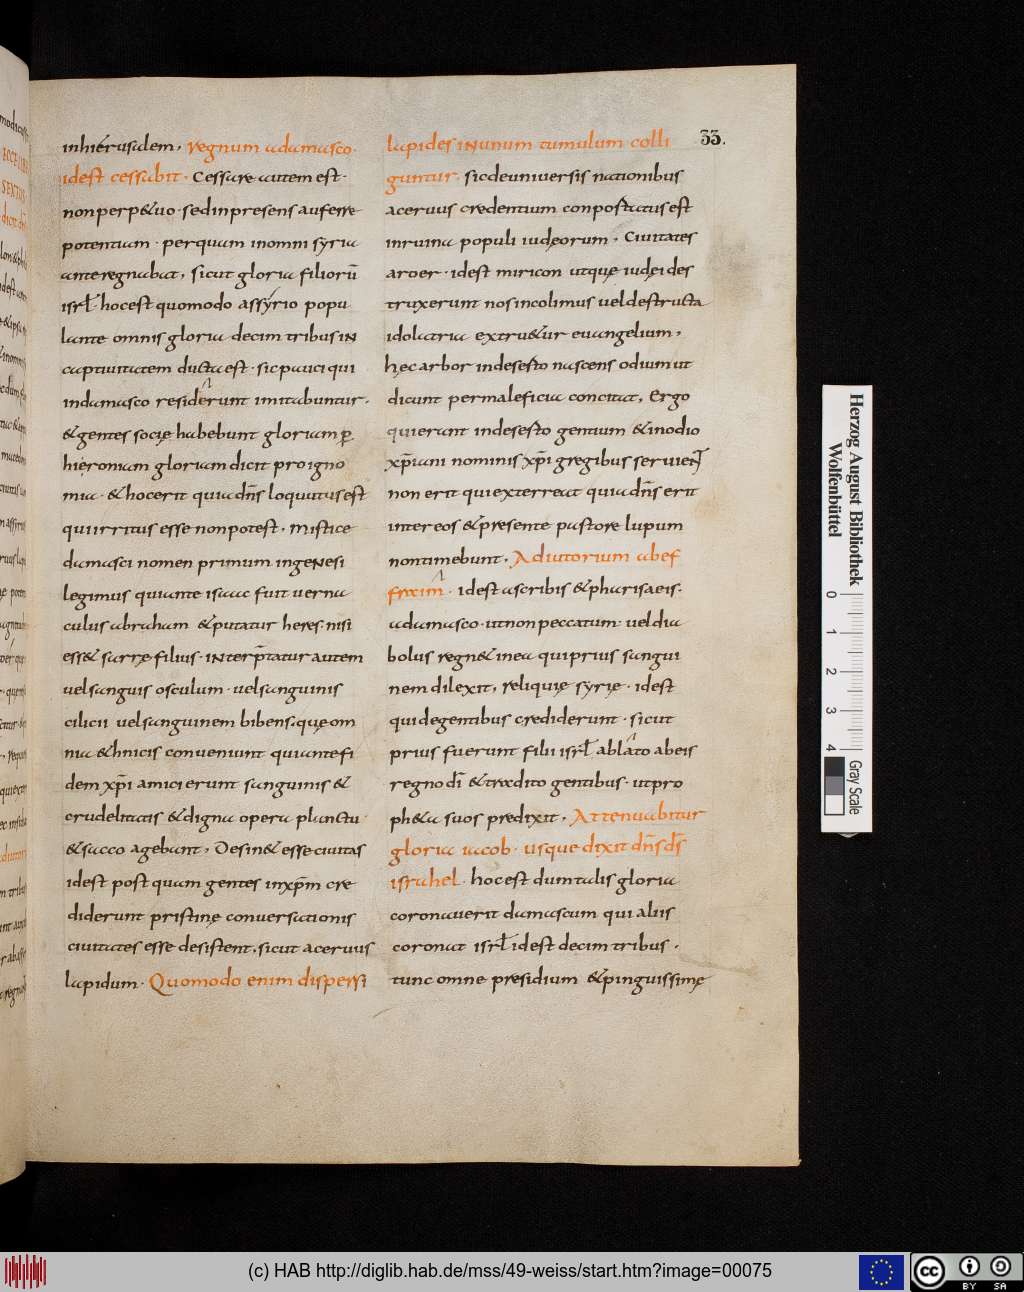 inhierusalem, regnum adamasco.
idest cessabit. Cessare autem est.
non perp&uo. sed inpresens auferre
potentiam. per quam inomni syria
ante regnabat, sicut gloria filiorū
isrł. hoc est quomodo assyrio popu
lante omnis gloria decim tribus in
captiuitatem ducta est. sic pauci qui
indamasco residerunt imitabuntur.
& gentes socię habebunt gloriam p̱
hieroniam gloriam dicit pro igno
mia. & hoc erit quia dn̄s loquutus est
qui irritus esse non potest. Mistice
damasci nomen primum ingenesi
legimus quia ante isaac fuit uerna
culus abraham & putatur heres. nisi
ess& sarrę filius. interp̄tatur autem
uel sanguis osculum. uel sanguinis
cilicii uel sanguinem bibens. quę om
nia & hnicis conueniunt quia ante fi
dem xp̄i amici erunt sanguinis &
crudelitatis & digna opera planctu.
& sacco agebant, Desin& esse ciuitas
idest post quam gentes inxp̄m cre
diderunt pristinę conuersationis
ciuitates esse desistent, sicut aceruus
lapidum. Quomodo enim dispersi
33.
lapides in unum tumulum colli
guntur. sic de uniuersis nationibus
aceruus credentium conpostatus est
in ruina populi iudęorum. Ciuitates
aroer. idest miricon utquę iudęi des
truxerunt nos incolimus uel destructa
idolatria extru&ur euangelium,
hęc arbor indeserto nascens odium ut
dicunt per maleficia concitat, Ergo
qui erant indeserto gentium & inodio
xp̄iani nominis xp̄i gregibus seruient
non erit qui exterreat quia dn̄s erit
inter eos & presente pastore lupum
non timebunt, Adiutorium abef
fraim. idest ascribis & pharisaeis.
adamasco. ut non peccatum uel dia
bolus regn& in ea qui prius sangui
nem dilexit, reliquię syrię. idest
qui degentibus crediderunt. sicut
prius fuerunt filii isrł. ablato abeis
regno dī & tradito gentibus. ut pro
ph&a suos predixit, Attenuabitur
gloria iacob. usque dixit dn̄s d̄s
israhel. hoc est dum talis gloria
coronauerit damascum qui aliis
coronat isrł idest decim tribus.
tunc omne presidium & pinguissimę
Herzog August Bibliothek
Wolfenbüttel
0 1 2 3 4
Gray Scale
(c) HAB http://diglib.hab.de/mss/49-weiss/start.htm?image=00075
cc BY SA